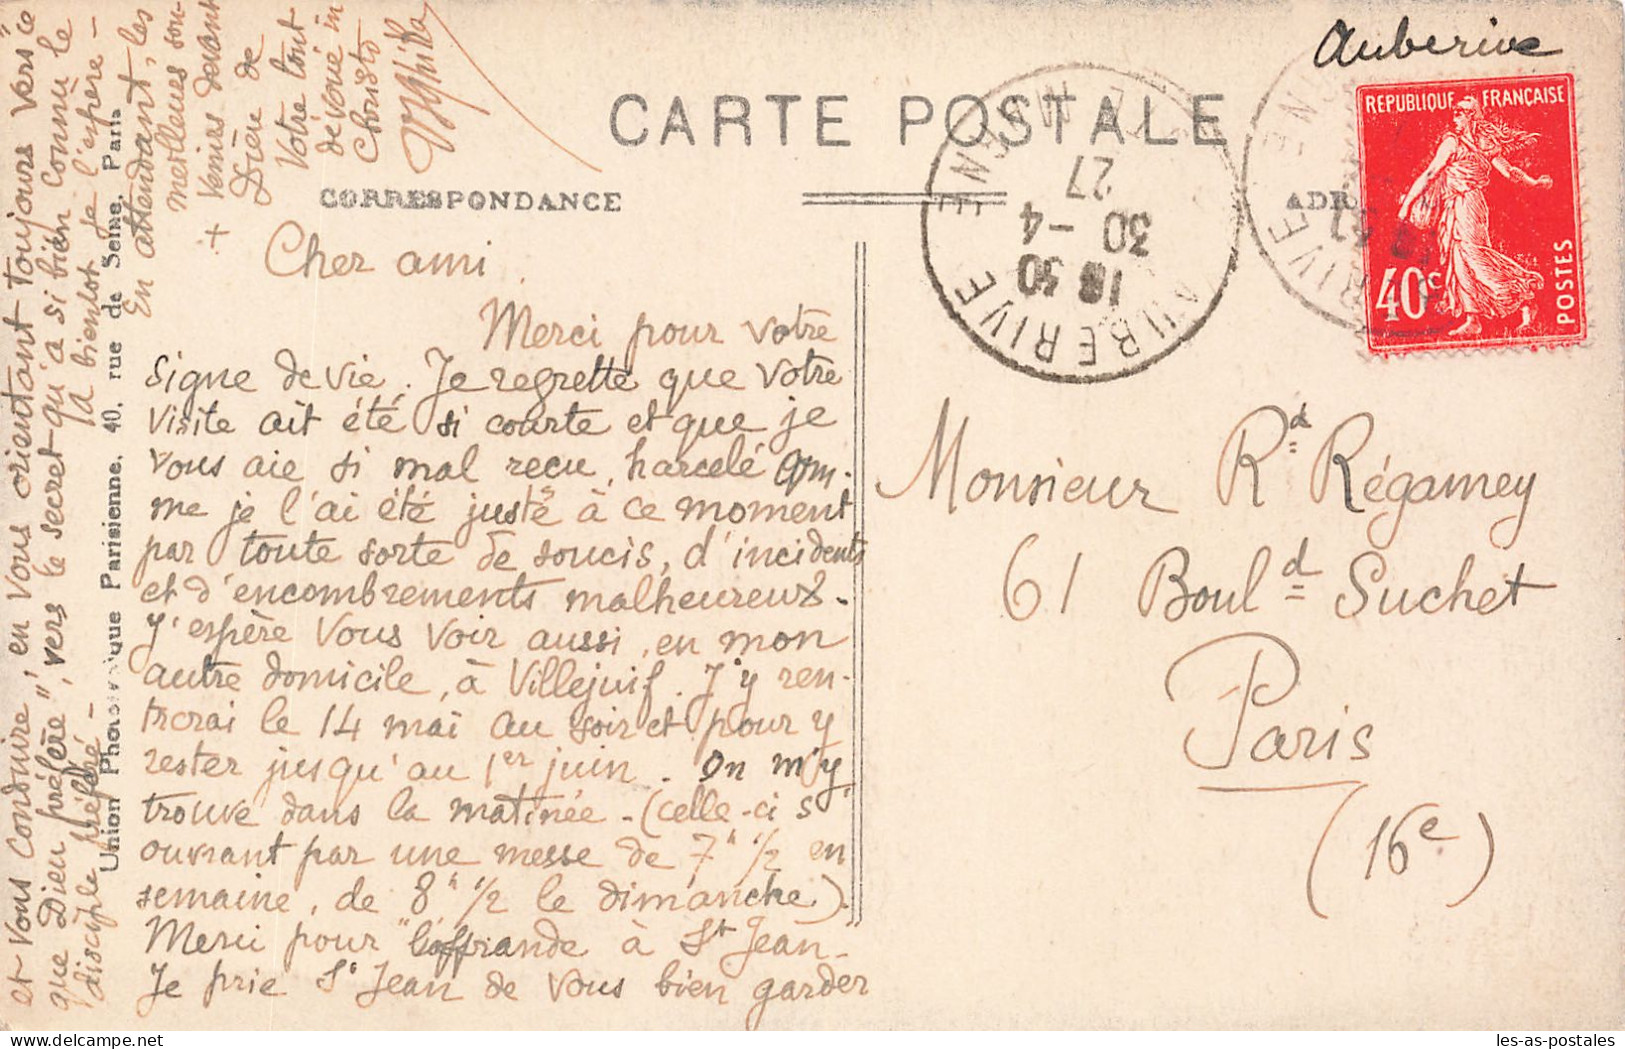 CARTE POSTALE
CORRESPONDANCE
Cher ami.
Merci pour votre
signe de vie. Je regrette que votre
visite ait été si courte et que je
vous aie si mal reçu, harcelé com-
me je l'ai été juste à ce moment
par toute sorte de soucis, d'incidents
et d'encombrements malheureux.
J'espère vous voir aussi, en mon
autre domicile, à Villejuif. J'y ren-
trerai le 14 mai au soir et pour y
rester jusqu'au 1er juin. On m'y
trouve dans la matinée - (celle-ci s'
ouvrant par une messe de 7h 1/2 en
semaine, de 8h 1/2 le dimanche).
Merci pour "l'offrande à St Jean" -
Je prie St Jean de vous bien garder
et vous conduire, en vous orientant toujours vers "ce
que Dieu préfère", vers le secret qu'a si bien connu le
disciple préféré -
là bientôt je l'espère -
En attendant, les
meilleurs sou-
venirs devant
Dieu de
Votre tout
dévoué in
Christo
+ VGhika
Union Photographique Parisienne. 40, rue de Seine. Paris
Auberive
REPUBLIQUE FRANÇAISE
40c
POSTES
AUBERIVE
18 30
30 -4
27
Hte MARNE
ADR
Monsieur Rd Régamey
61 Bould Suchet
Paris
(16e)
les-as-postales